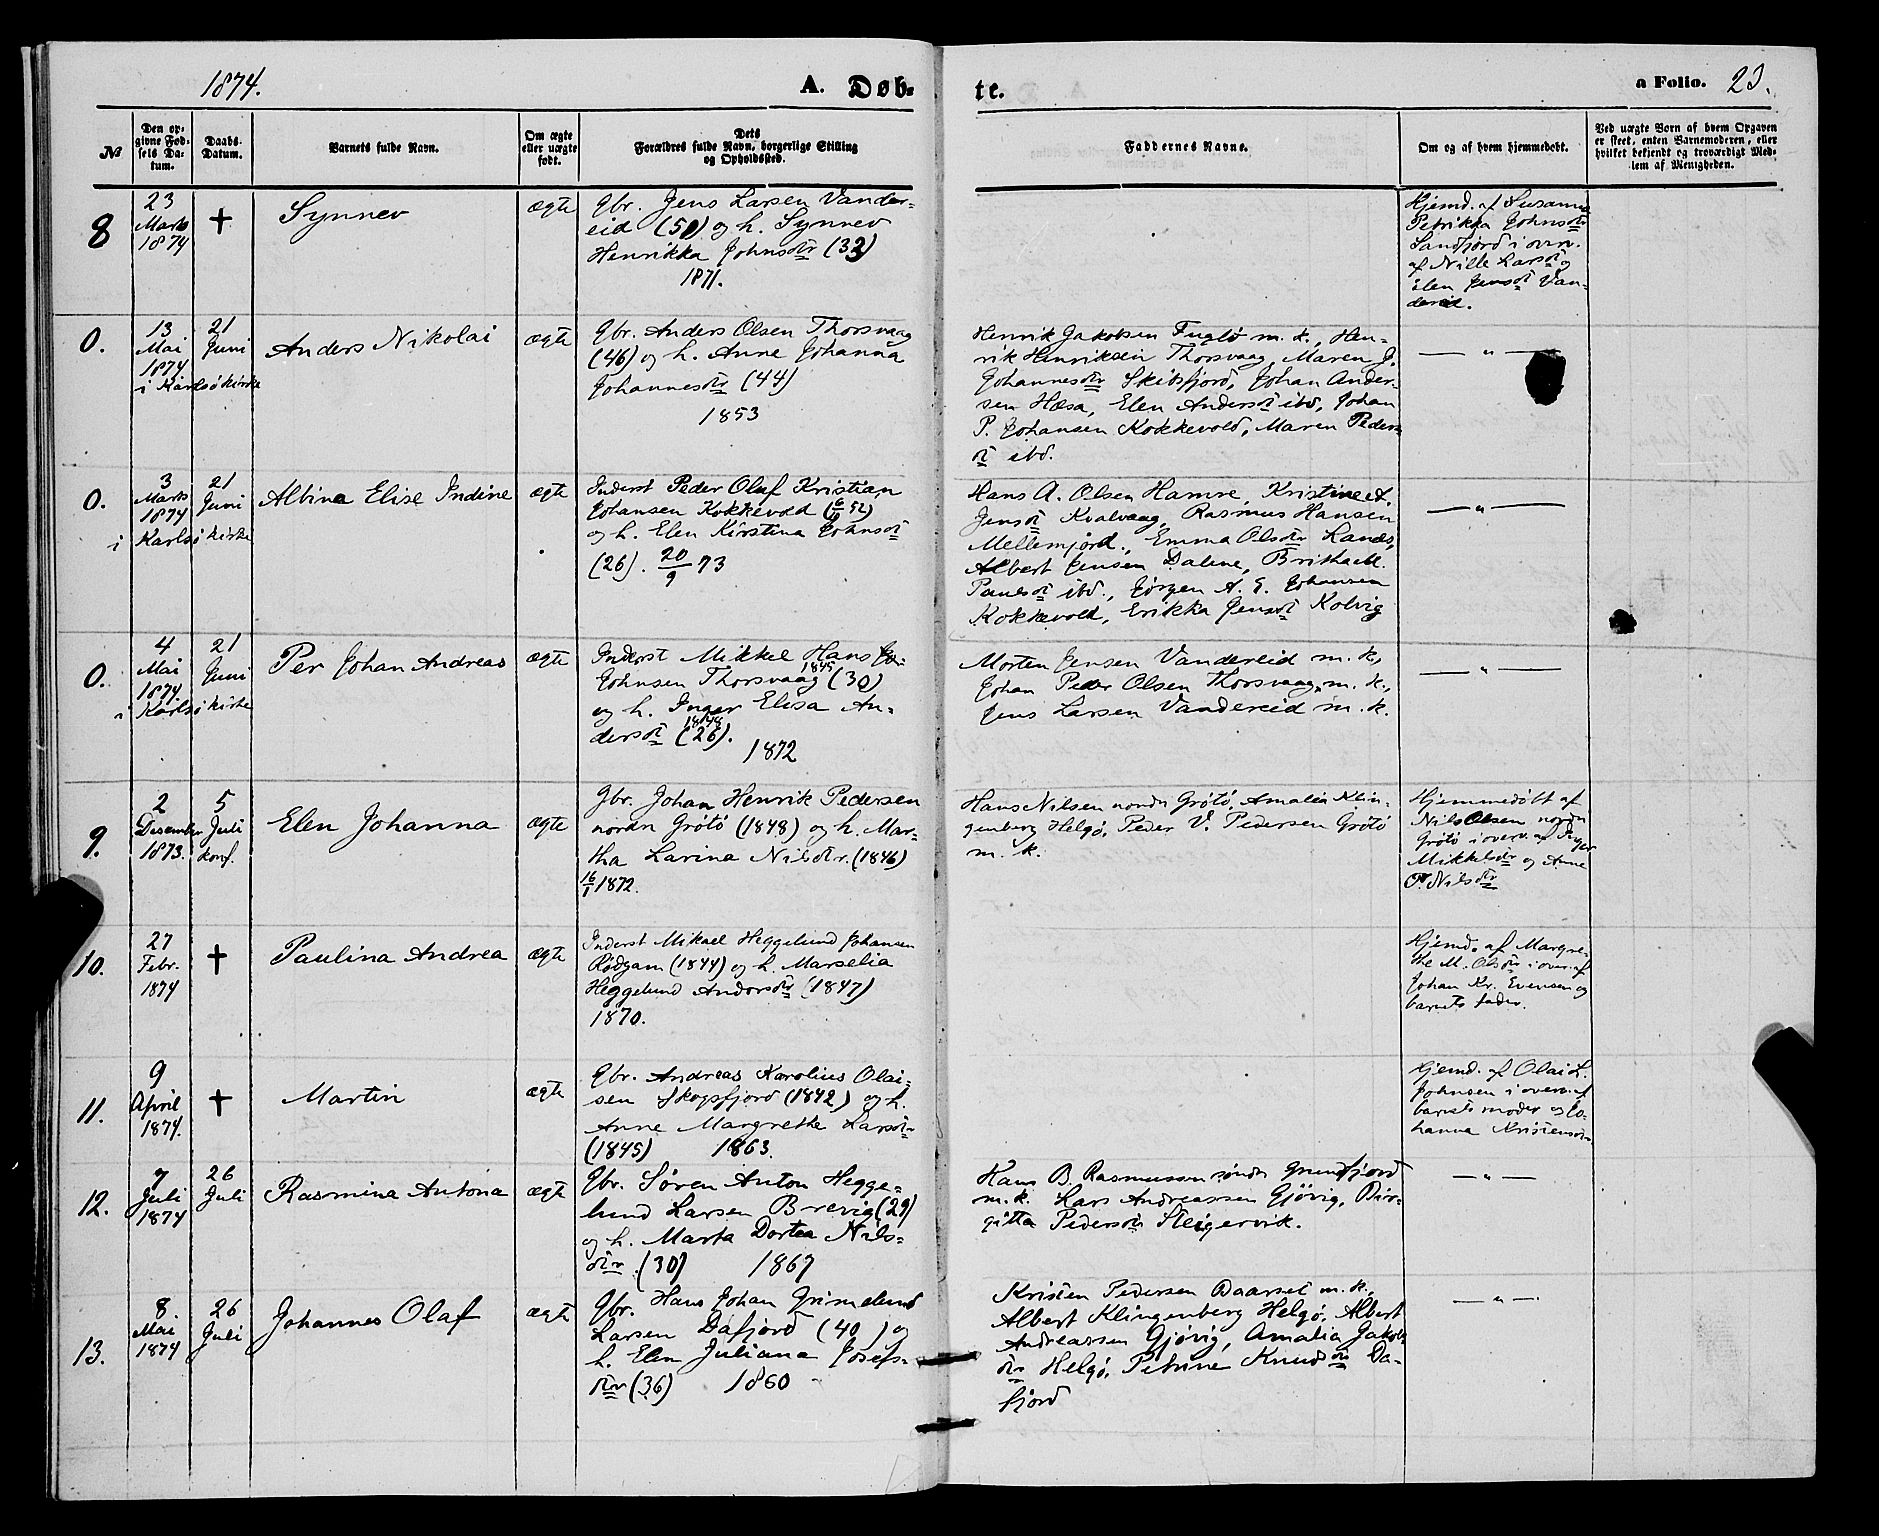 1874.
A. Døb-
te.
a Folio. 23.
No
Den op-
givne Fød-
sels Da-
tum.
Daabs-
Datum.
Barnets fulde Navn.
Om ægte
eller uægte
født.
Dets
Forældres fulde Navn, borgerlige Stilling
og Opholdssted.
Faddernes Navne.
Om og af hvem hjemmedøbt.
Ved uægte Børn af hvem Opgaven
er skeet, enten Barnemoderen, eller
hvilket bekjendt og troværdigt Med-
lem af Menigheden.
8
23
Marts
1874
+
Synnev
ægte
Gbr. Jens Larsen Vander-
eid (50) og h. Synnev
Henrikka Johnsdtr (33)
1871.
Hjemd. af Susanna
Petrikka Johnsdtr
Sandfjord i overv.
af Nille Larsdt og
Elen Jensdt Van-
dereid.
0.
13
Mai
1874
21
Juni
i Karlsö kirke
Anders Nikolai
ægte
Gbr. Anders Olsen Thorsvaag
(46) og h. Anne Johanna
Johannesdtr (44)
1853
Henrik Jakobsen Fuglö m. k., Hen-
rik Henriksen Thorsvaag, Maren J.
Johannesdtr Skibsfjord, Johan Ander-
sen Hæsa, Elen Andersdt ibd, Johan
P. Johansen Kokkevold, Maren Peders-
dt ibd.
— " —
0.
3
Marts
1874
21
Juni
i Karlsö kirke
Albina Elise Indine
ægte
Inderst Peder Oluf Kristian
Johansen Kokkevold (6/10 52)
og h. Elen Kirstina Johnsdt
(26). 20/9 73
Hans A. Olsen Hamre, Kristine A.
Jensdt Kvalvaag, Rasmus Hansen
Mellemjord., Emma Olsdtr Lanes,
Albert Jensen Dalene, Britha M.
Paulsdt ibd., Jörgen A. E. Johansen
Kokkevold, Erikka Jensdt Kolvig
— " —
0.
4
Mai
1874.
21
Juni
i Karlsö kirke
Per Johan Andreas
ægte
Inderst Mikkel Hans Jo-
1845
Johnsen Thorsvaag (30)
og h. Inger Elisa An-
1848
dersdt (26).
1872
Morten Jensen Vandereid m. k,
Johan Peder Olsen Thorsvaag m. k.,
Jens Larsen Vandereid m. k.
— " —
9.
2
Desember
1873.
5
Juli
konf.
Elen Johanna
ægte
Gbr. Johan Henrik Pedersen
nordn Grötö (1848) og h. Mar-
tha Larina Nilsdtr. (1846)
16/1 1872.
Hans Nilsen nordn Grötö, Amalia Klin-
genberg Helgö, Peder V. Pedersen Grötö
m. k.
Hjemmedöbt af
Nils Olsen nordn
Grötö i overv. af Inger
Mikkelsdtr og Anne
O. Nilsdtr
10.
27
Febr.
1874
+
Paulina Andrea
ægte
Inderst Mikael Heggelund Johansen
Rödgam (1844) og h. Marselia
Heggelund Andorsdtr (1847)
1870.
Hjemd. af Margre-
the M. Olsdtr i overv. af
Johan Kr. Evensen og
barnets fader.
11.
9
April
1874.
+
Martin
ægte
Gbr. Andreas Karolius Olai-
sen Skogsfjord (1842) og h.
Anne Margrethe Larsdtr
(1845) 1863.
Hjemd. af Olai L.
Johnsen i overv. af
barnets moder og Jo-
hanna Kristensdtr
12.
7
Juli
1874
26
Juli
Rasmina Antona
ægte
Gbr. Sören Anton Hegge-
lund Larsen Brevig (29)
og h. Marta Dortea Nils-
dtr. (30) 1867
Hans B. Rasmussen söndr Grunfjord
m. k. Lars Andreassen Gjövig, Bir-
gitta Pedersdt Sleigervik.
— " —
13.
8.
Mai
1874
26
Juli
Johannes Olaf
ægte
Gbr. Hans Johan Grimelund
Larsen Dafjord (40) og
h. Elen Juliana Josefs-
dtr (36) 1860
Kristen Pedersen Daarset m. k.,
Albert Klingenberg Helgö, Albert
Andreassen Gjövig, Amalia Jakobs-
dtr Helgö, Petrine Knudsdtr Da-
fjord
— " —